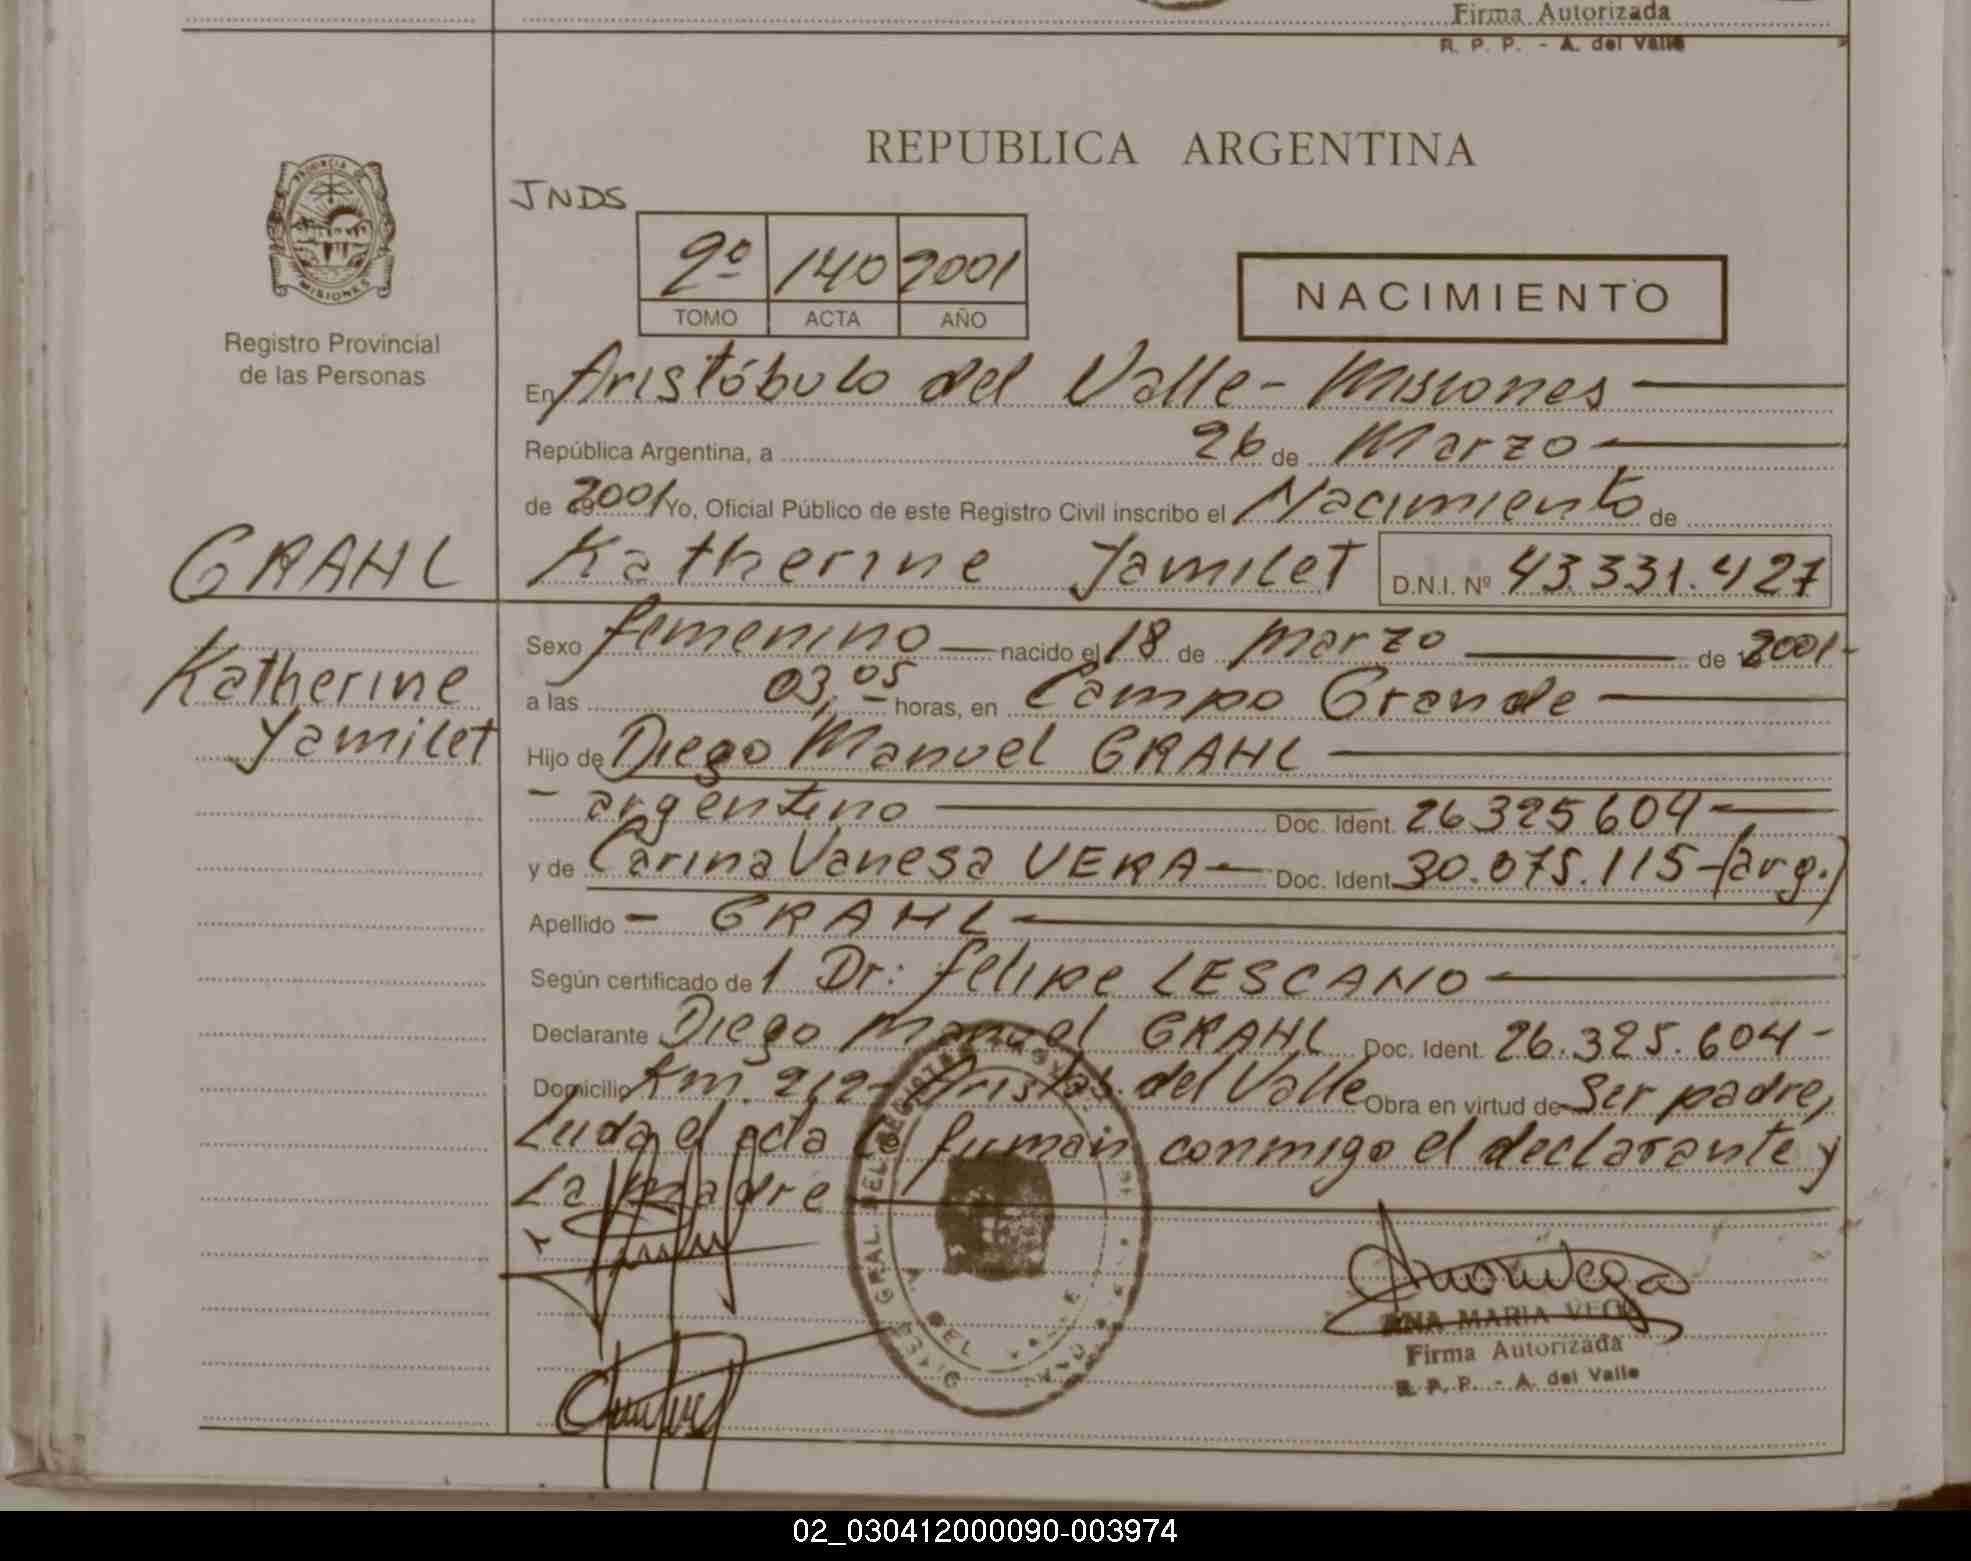 Firma Autorizada
R. P. P. - A. del Valle
REPUBLICA ARGENTINA
PROVINCIA DE
MISIONES
Registro Provincial
de las Personas
JNDS
2º 140 2001
TOMO ACTA AÑO
NACIMIENTO
En Aristóbulo del Valle - Misiones
República Argentina, a 26 de Marzo
de 2001 Yo, Oficial Público de este Registro Civil inscribo el Nacimiento de
GRAHL
Katherine Yamilet D.N.I. Nº 43.331.427
Katherine
Yamilet
Sexo femenino nacido el 18 de marzo de 2001-
a las 03,05 horas, en Campo Grande
Hijo de Diego Manuel GRAHL
- argentino Doc. Ident. 26325604
y de Carina Vanesa VERA Doc. Ident. 30.075.115-(arg.)
Apellido - GRAHL
Según certificado de 1 Dr: Felipe LESCANO
Declarante Diego Manuel GRAHL Doc. Ident. 26.325.604-
Domicilio Km. 212- Aristób. del Valle Obra en virtud de Ser padre,
Leida el acta la firman conmigo el declarante y
La madre
ANA MARIA VEGA
Firma Autorizada
R. P. P. - A. del Valle
02_030412000090-003974